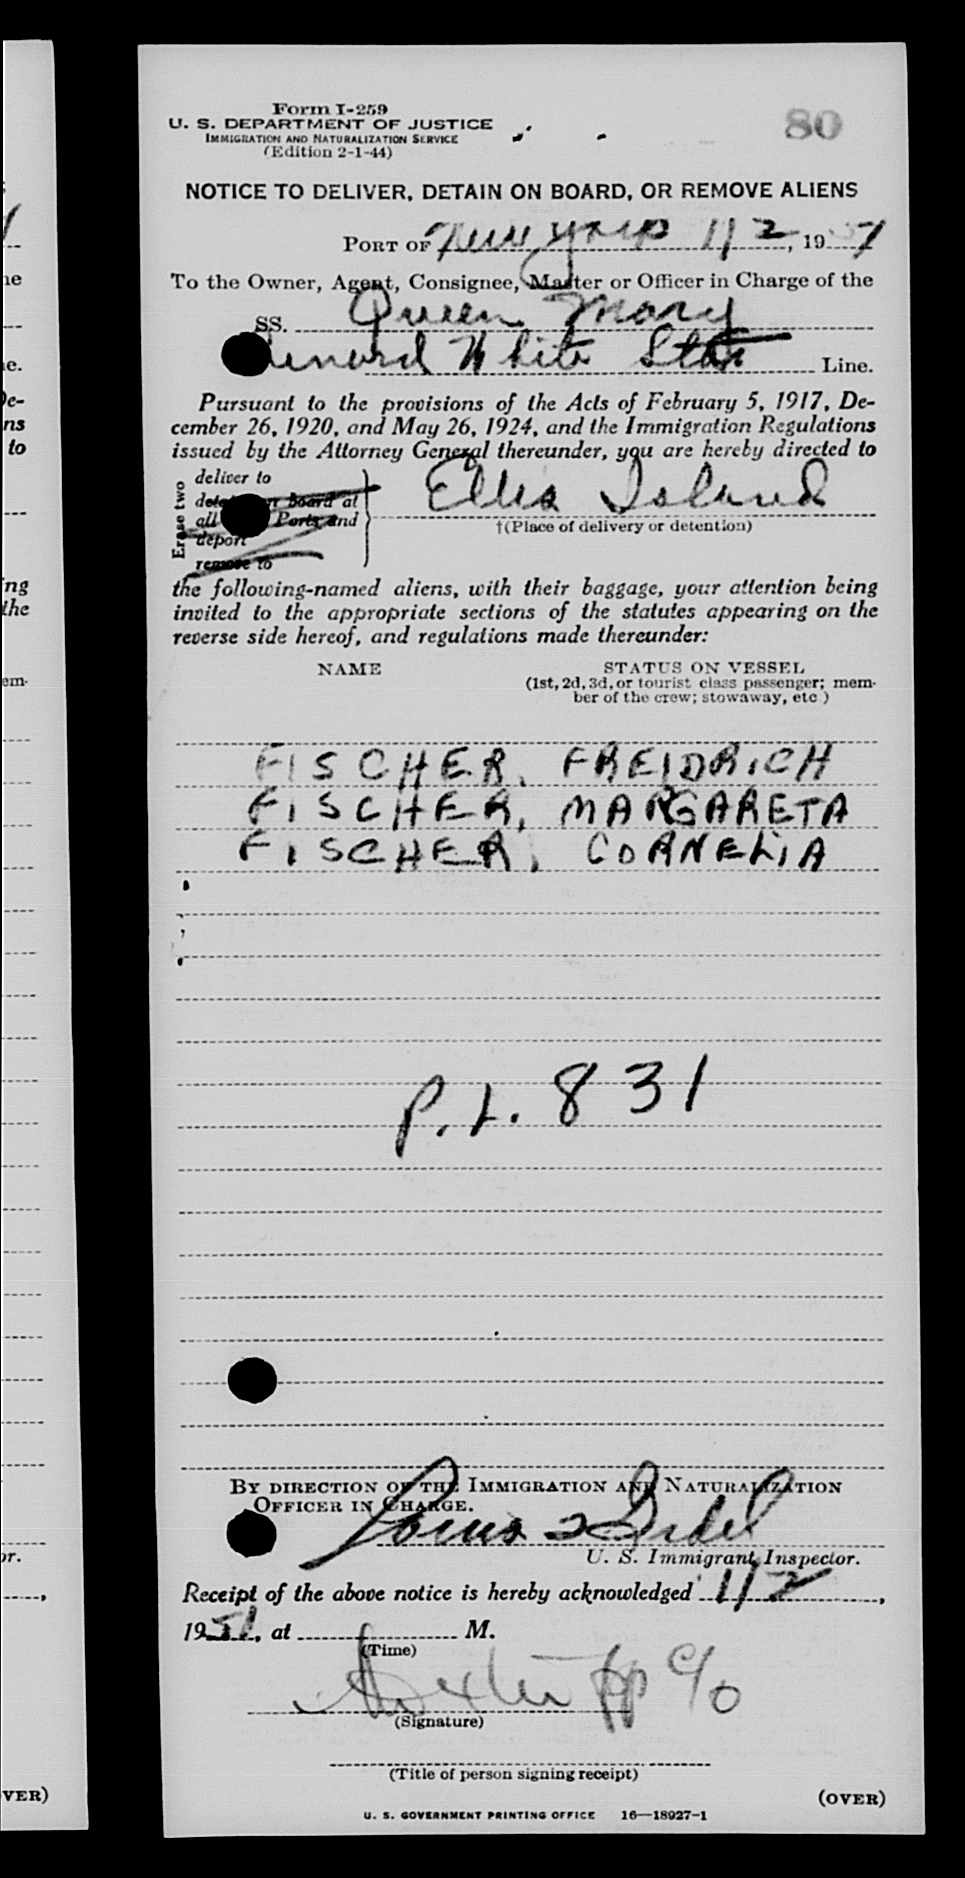 Form I-259
U. S. DEPARTMENT OF JUSTICE
IMMIGRATION AND NATURALIZATION SERVICE
(Edition 2-1-44)
80
NOTICE TO DELIVER, DETAIN ON BOARD, OR REMOVE ALIENS
PORT OF New York 1/2, 1951
To the Owner, Agent, Consignee, Master or Officer in Charge of the
SS. Queen Mary
Cunard White Star Line.
Pursuant to the provisions of the Acts of February 5, 1917, De-
cember 26, 1920, and May 26, 1924, and the Immigration Regulations
issued by the Attorney General thereunder, you are hereby directed to
Erase two
deliver to
detain on Board at
all Ports and
deport
remove to
Ellis Island
†(Place of delivery or detention)
the following-named aliens, with their baggage, your attention being
invited to the appropriate sections of the statutes appearing on the
reverse side hereof, and regulations made thereunder:
NAME
STATUS ON VESSEL
(1st, 2d, 3d, or tourist class passenger; mem-
ber of the crew; stowaway, etc.)
FISCHER, FREIDRICH
FISCHER, MARGARETA
FISCHER, CORNELIA
P.L. 831
BY DIRECTION OF THE IMMIGRATION AND NATURALIZATION
OFFICER IN CHARGE.
Louis
U. S. Immigrant Inspector.
Receipt of the above notice is hereby acknowledged 1/2,
1951, at M.
(Time)
c/o
(Signature)
(Title of person signing receipt)
(OVER)
U. S. GOVERNMENT PRINTING OFFICE 16—18927-1